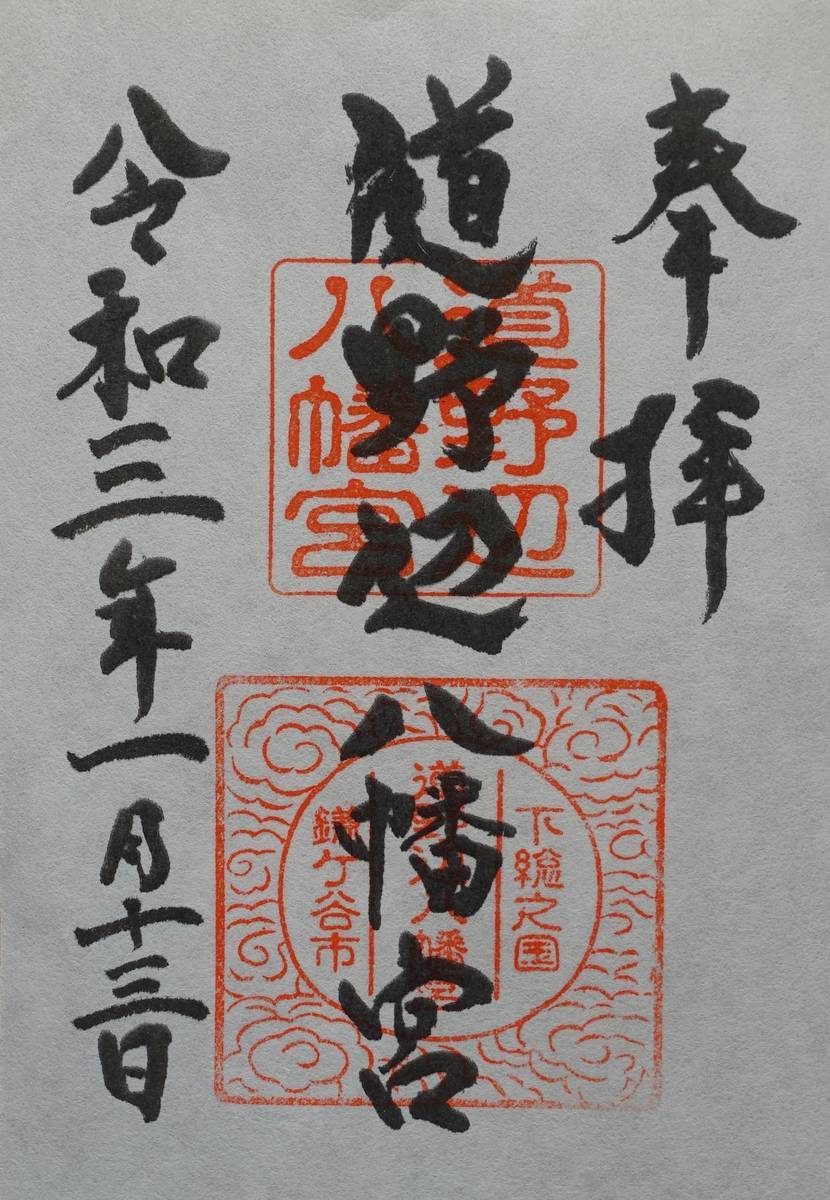 奉拝
道野辺八幡宮
令和三年一月十三日
道野辺
八幡宮
下総之国
道野辺八幡宮
鎌ケ谷市